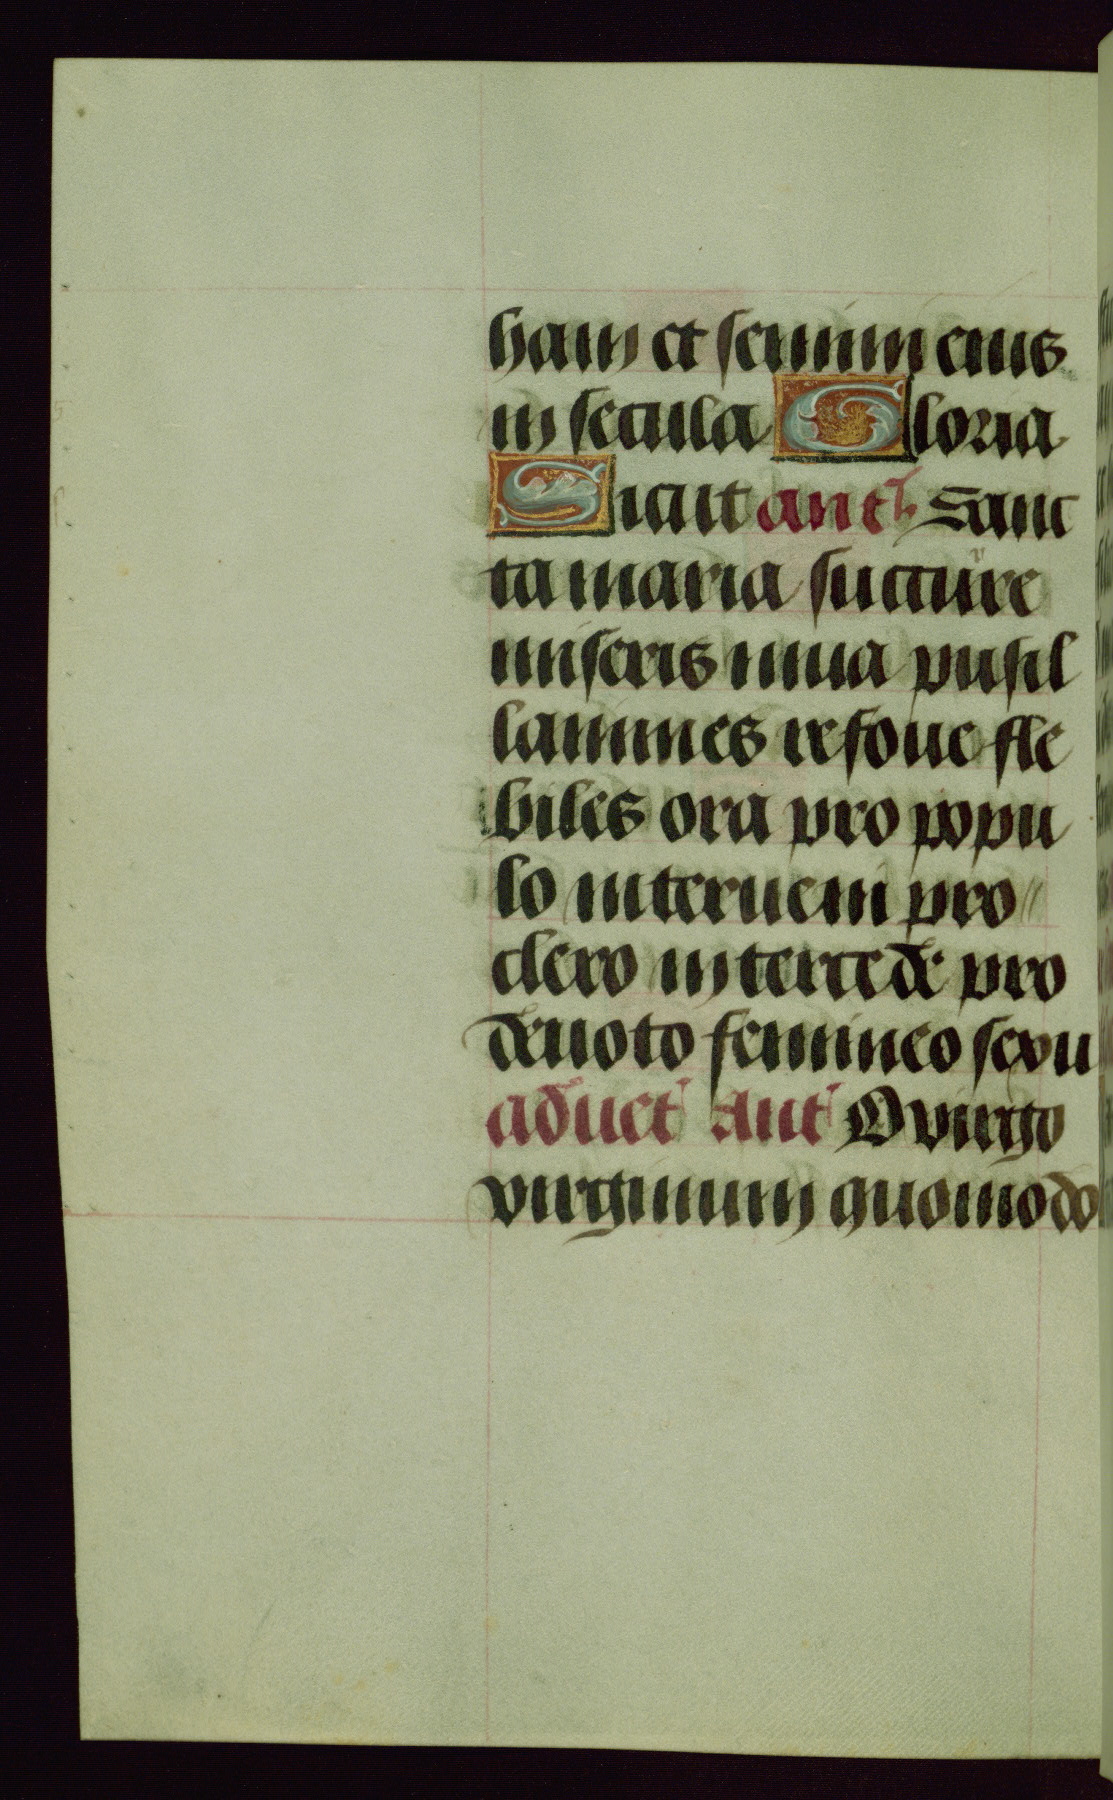 ham et semini eius
in secula Gloria
Sicut ant. Sanc
ta maria succure
miseris iuua pusil
lanimes refoue fle
biles ora pro popu
lo interueni pro
clero intercede pro
deuoto femineo sexu
aduet ant O virgo
virginum quomodo